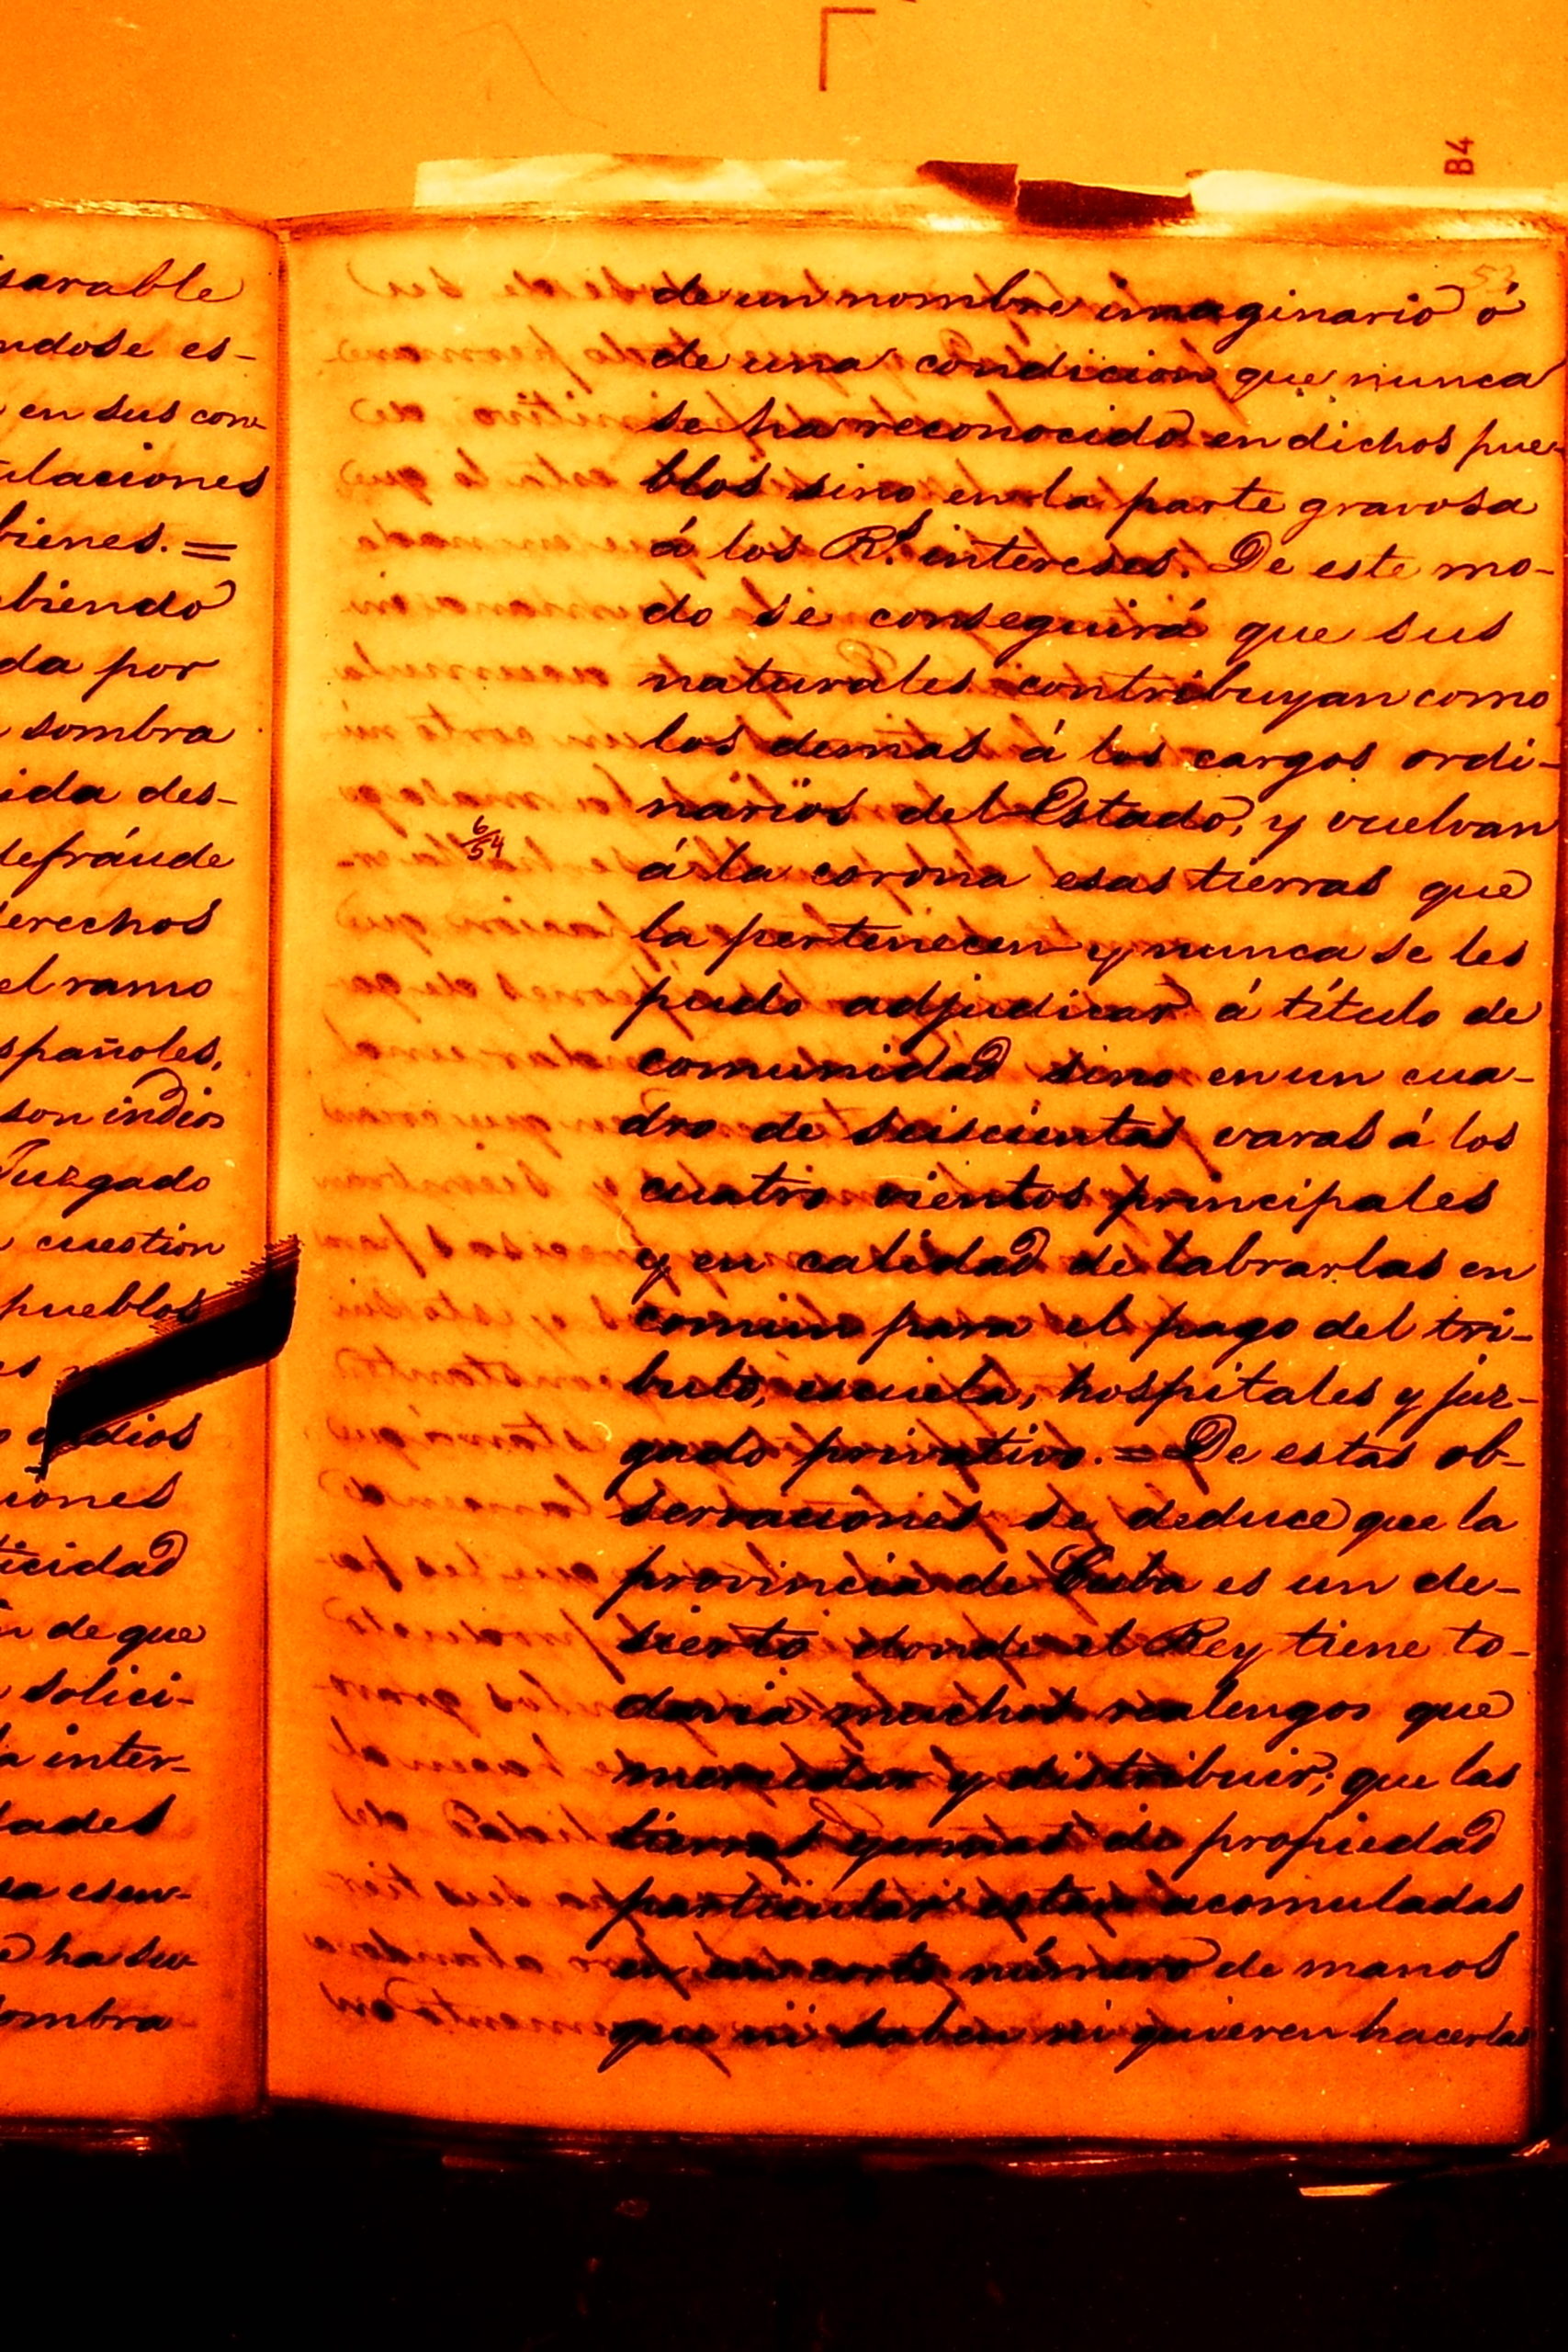 B4
sarable
ndose es-
en sus con-
ulaciones
bienes. =
biendo
da por
sombra
ida des-
defráude
derechos
el ramo
spañoles,
son indios
Juzgado
cuestion
pueblos
es
dios
iones
ticidad
de que
solici-
a inter-
dades
sa escu-
ha su-
sombra
52
de un nombre imaginario ó
de una condicion que nunca
se ha reconocido en dichos pue-
blos sino en la parte gravosa
á los R.s intereses. De este mo-
do se conseguirá que sus
naturales contribuyan como
los demas á los cargos ordi-
narios del Estado, y vuelvan
6/54
á la corona esas tierras que
la pertenecen y nunca se les
pudo adjudicar á título de
comunidad sino en un cua-
dro de seiscientas varas á los
cuatro vientos principales
y en calidad de labrarlas en
comun para el pago del tri-
buto, escuela, hospitales y juz-
gado privativo. = De estas ob-
servaciones se deduce que la
provincia de Cuba es un de-
sierto donde el Rey tiene to-
davia muchos realengos que
mercedar y distribuir; que las
tierras yermas de propiedad
particular estan acomuladas
en un corto número de manos
que ni saben ni quieren hacerlas